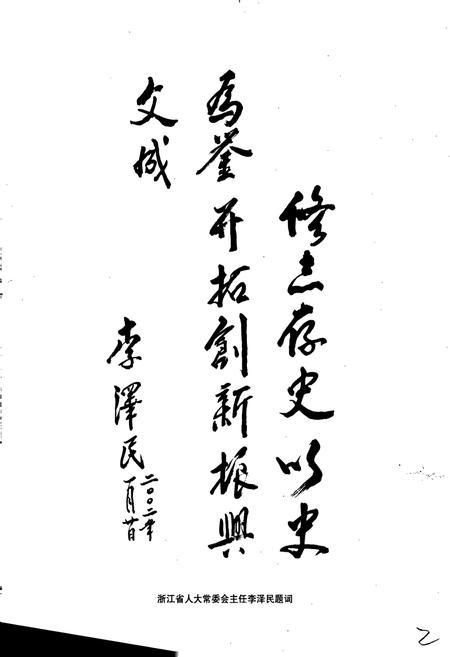 修志存史以史
為鉴开拓創新振興
文成
李澤民
二〇〇二年
一月廿日
浙江省人大常委会主任李泽民题词